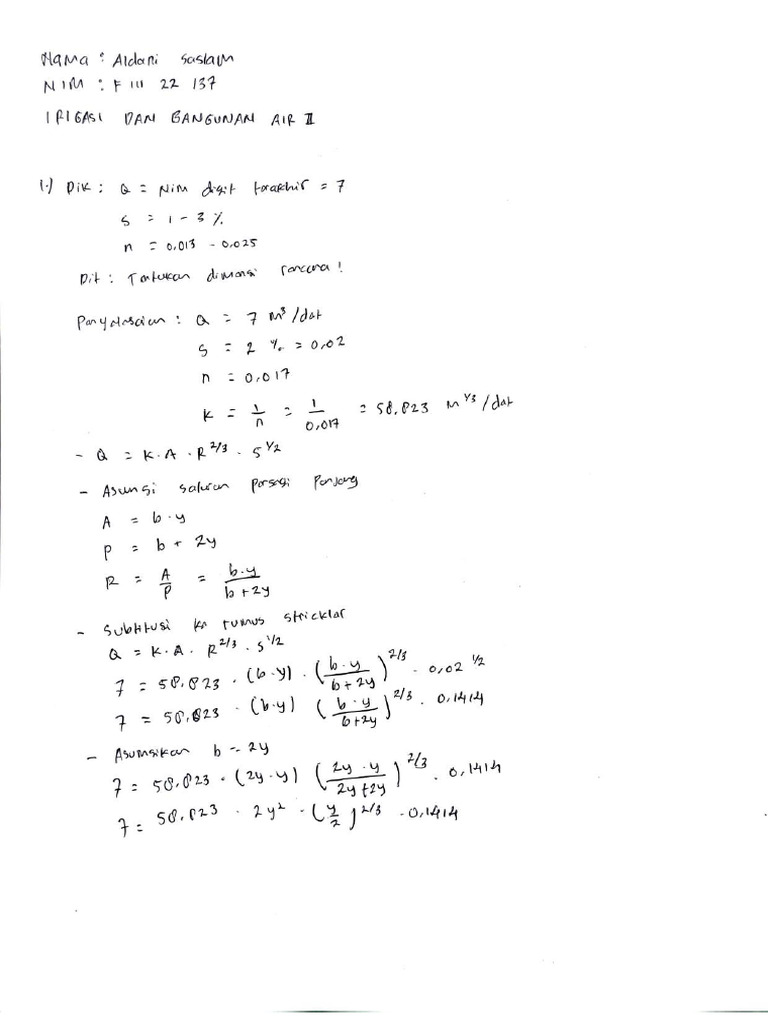 Nama : Aldani Saslam
NIM : F 111 22 137
IRIGASI DAN BANGUNAN AIR II
1.) Dik : Q = NIM digit terakhir = 7
S = 1 - 3 %
n = 0,013 - 0,025
Dit : Tentukan dimensi rencana !
Penyelesaian : Q = 7 M³/det
S = 2 % = 0,02
n = 0,017
K = 1/n = 1/0,017 = 58,823 M^1/3/det
- Q = K . A . R^2/3 . S^1/2
- Asumsi saluran persegi panjang
A = b . y
P = b + 2y
R = A/P = b.y/b+2y
- Subtitusi ke rumus strickler
Q = K . A . R^2/3 . S^1/2
7 = 58,823 . (b.y) . (b.y/b+2y)^2/3 . 0,02^1/2
7 = 58,823 . (b.y) (b.y/b+2y)^2/3 . 0,1414
- Asumsikan b = 2y
7 = 58,823 . (2y.y) (2y.y/2y+2y)^2/3 . 0,1414
7 = 58,823 . 2y² . (y/2)^2/3 . 0,1414